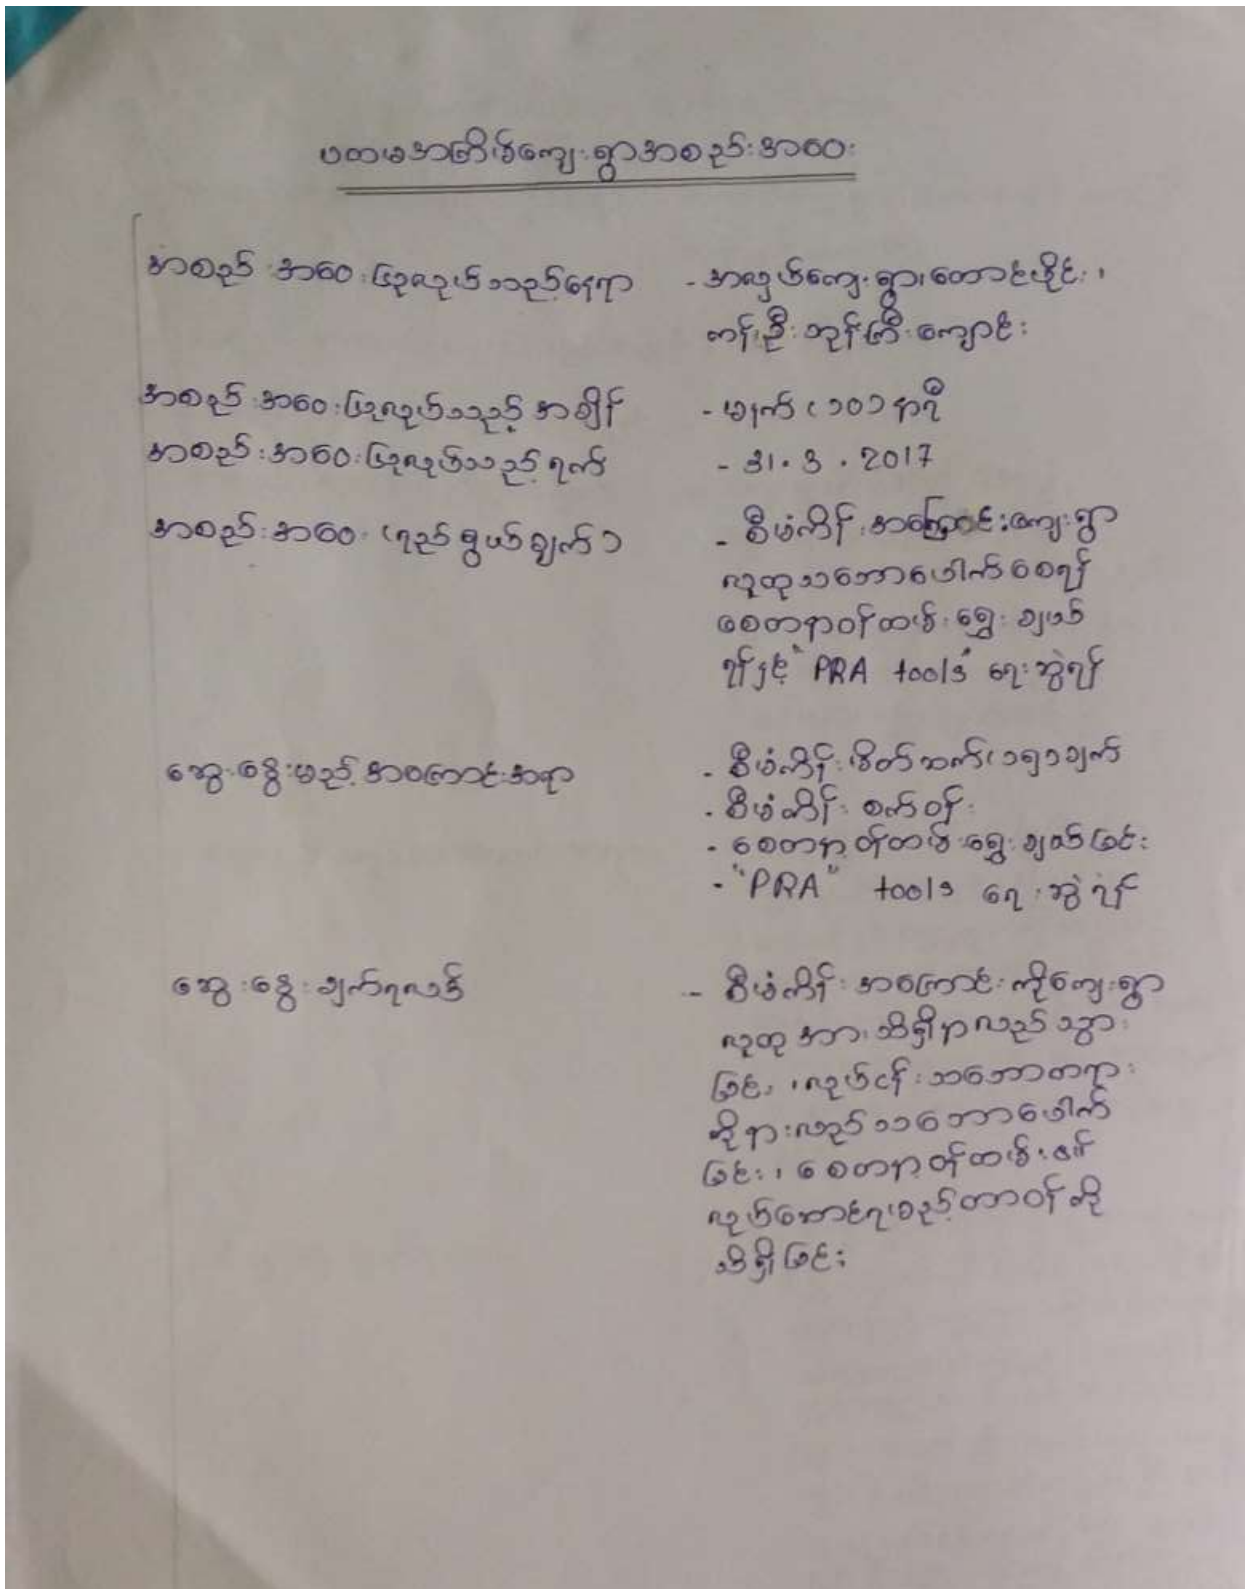 ပထမအကြိမ်ကျေးရွာအစည်းအဝေး
အစည်းအဝေးပြုလုပ်သည့်နေရာ - အလှပ်ကျေးရွာ၊ တောင်ပိုင်း၊
ကန်ဦးဘုန်းကြီးကျောင်း
အစည်းအဝေးပြုလုပ်သည့် အချိန် - မနက် (၁၀) နာရီ
အစည်းအဝေးပြုလုပ်သည့် ရက် - 31.3.2017
အစည်းအဝေး (ရည်ရွယ်ချက်) - စီမံကိန်းအကြောင်းကျေးရွာ
လူထုသဘောပေါက်စေရန်
စေတနာ့ဝန်ထမ်းရွေးချယ်
ရန်နှင့် "PRA tools" ရေးဆွဲရန်
ဆွေးနွေးမည့် အကြောင်းအရာ - စီမံကိန်းမိတ်ဆက် (၁၅) ချက်
- စီမံကိန်း စက်ဝန်း
- စေတနာ့ဝန်ထမ်းရွေးချယ်ခြင်း
- "PRA" tools ရေးဆွဲရန်
ဆွေးနွေးချက်ရလဒ် - စီမံကိန်းအကြောင်းကိုကျေးရွာ
လူထုအား သိရှိနားလည်သွား
ခြင်း၊ လုပ်ငန်းသဘောတရား
ကိုနားလည်သဘောပေါက်
ခြင်း၊ စေတနာ့ဝန်ထမ်း၏
လုပ်ဆောင်ရမည့်တာဝန်ကို
သိရှိခြင်း